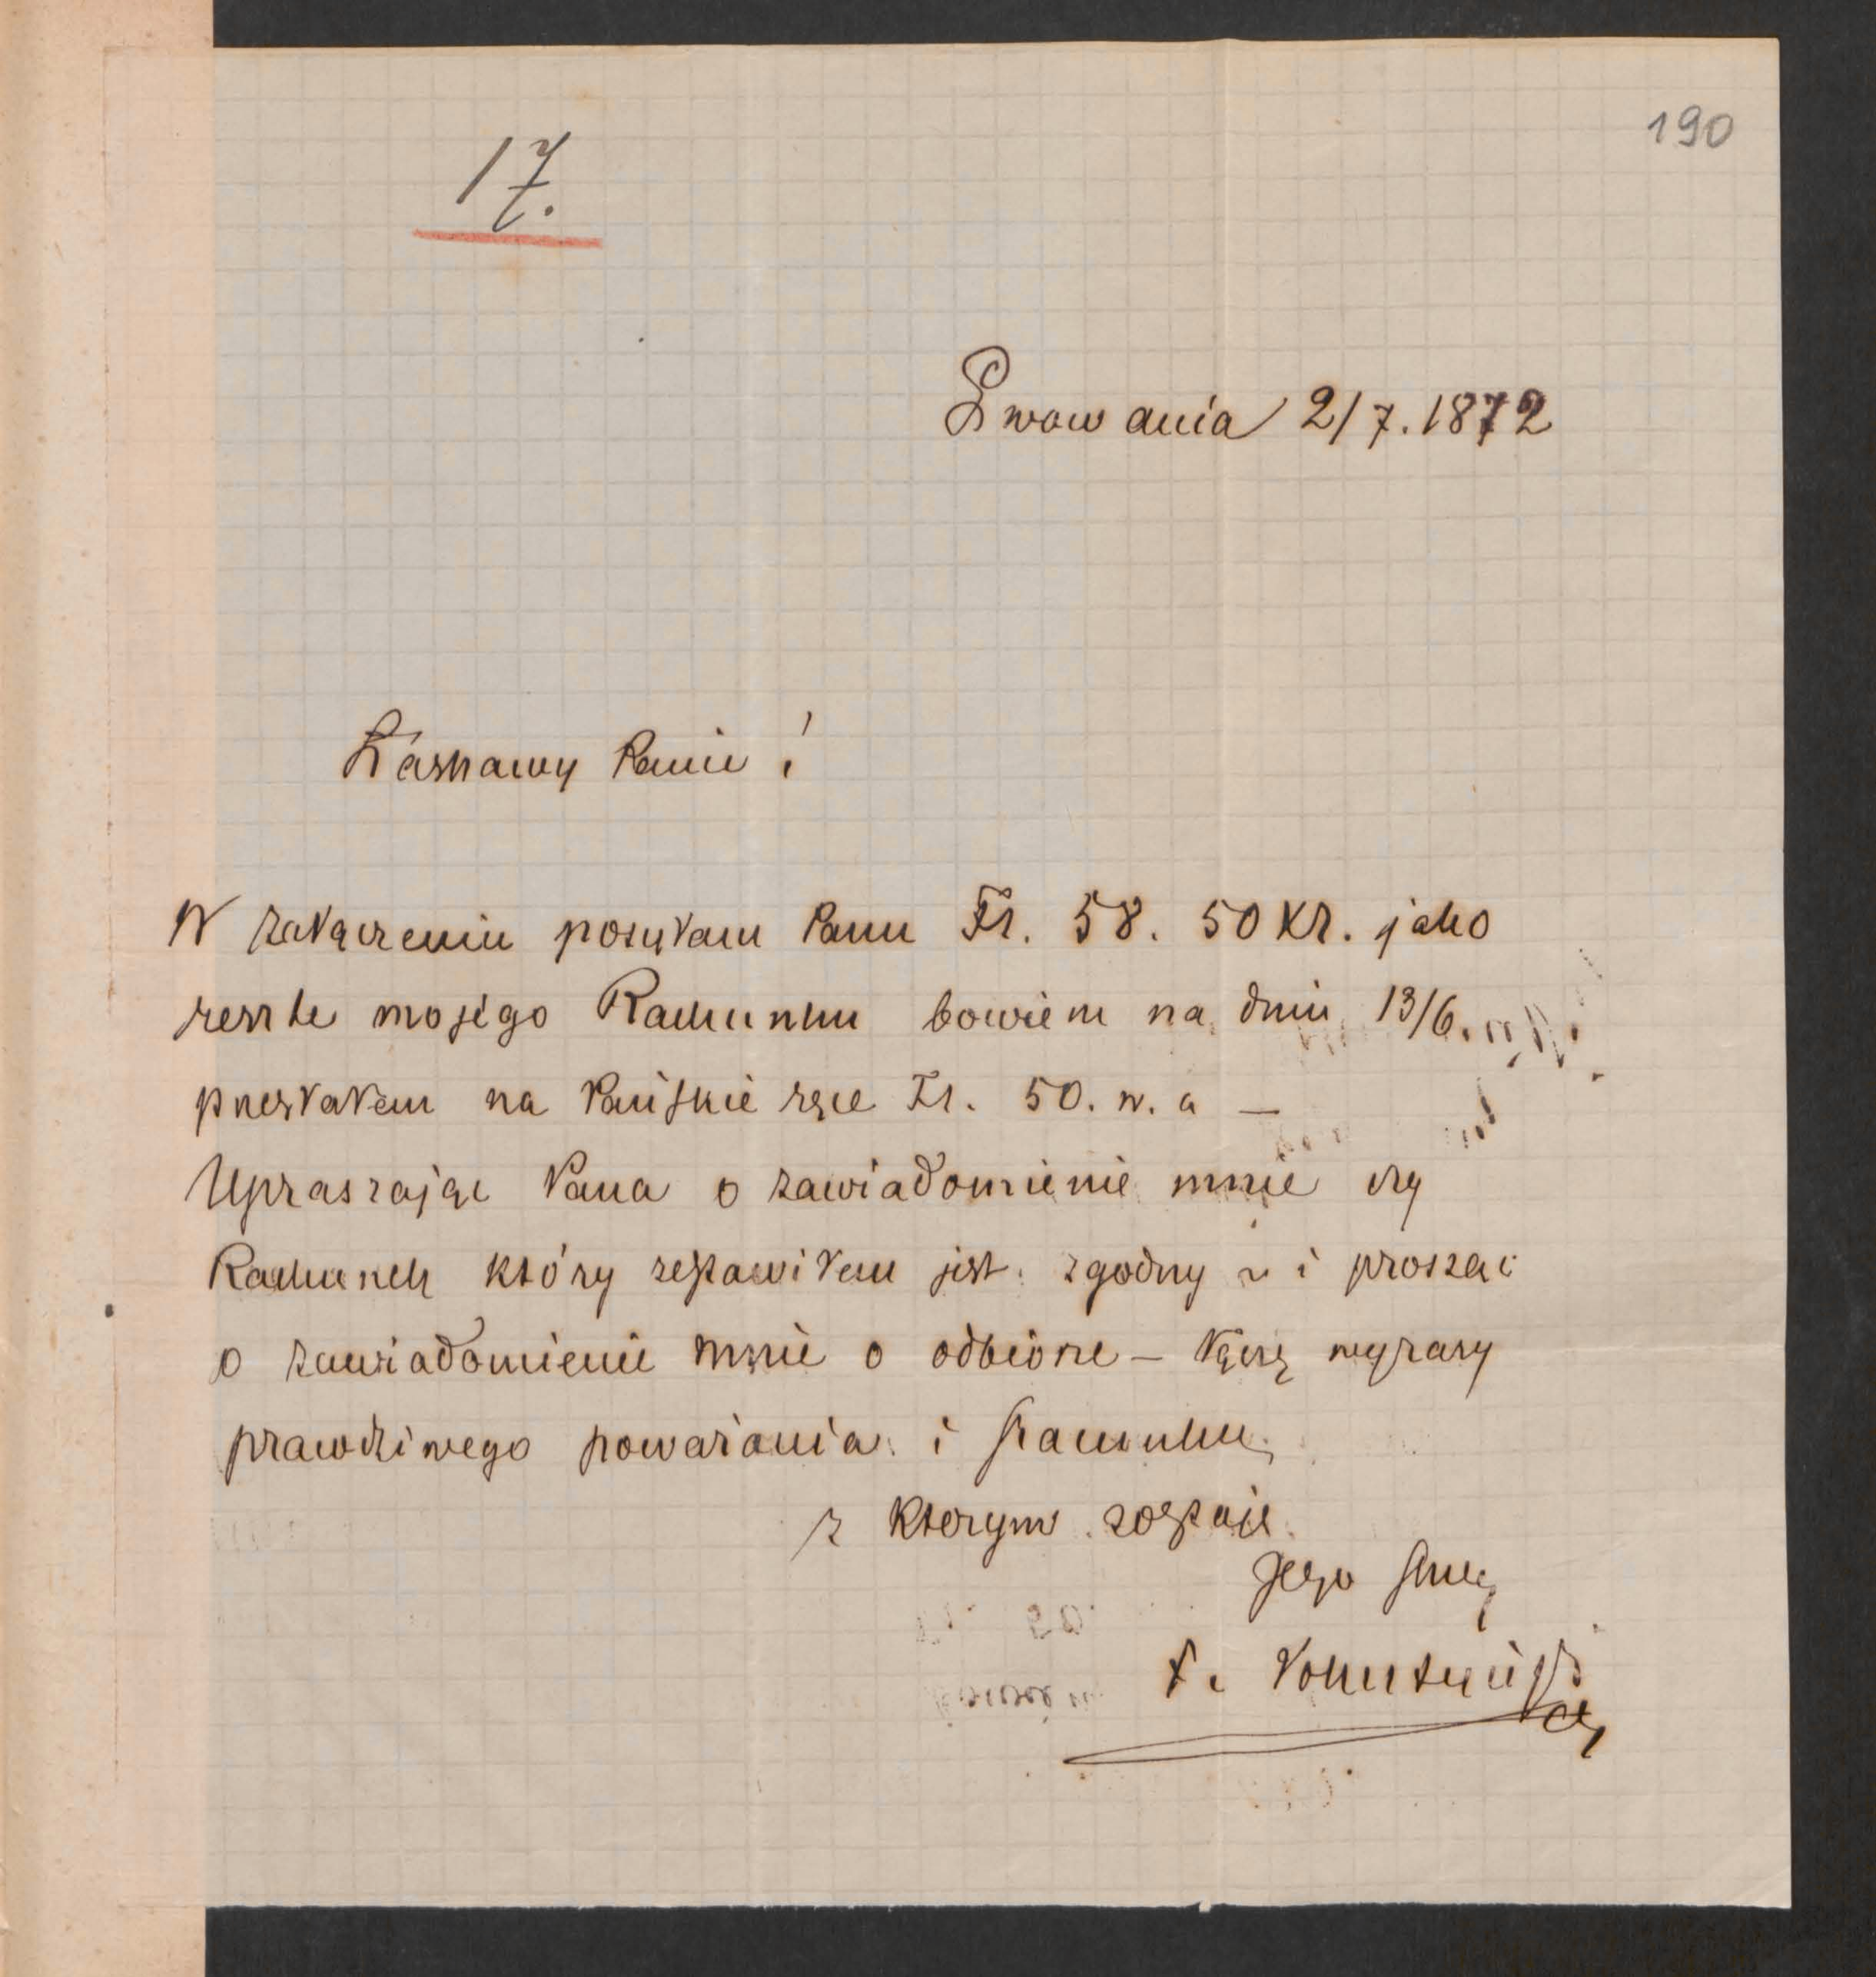 190
17.
Lwow dnia 2/7. 1872
Łaskawy Panie!
W załączeniu posyłam Panu Fr. 58. 50 Kr. jako
resztę mojego Rachunku bowiem na dniu 13/6.
przesłałem na Pańskie ręce Fr. 50. w. a —
Upraszając Pana o zawiadomienie mnie czy
Rachunek który zestawiłem jest zgodny i prosząc
o zawiadomienie mnie o odbiorze — łączę wyrazy
prawdziwego poważania i szacunku,
z którym zostaję
Jego sługa